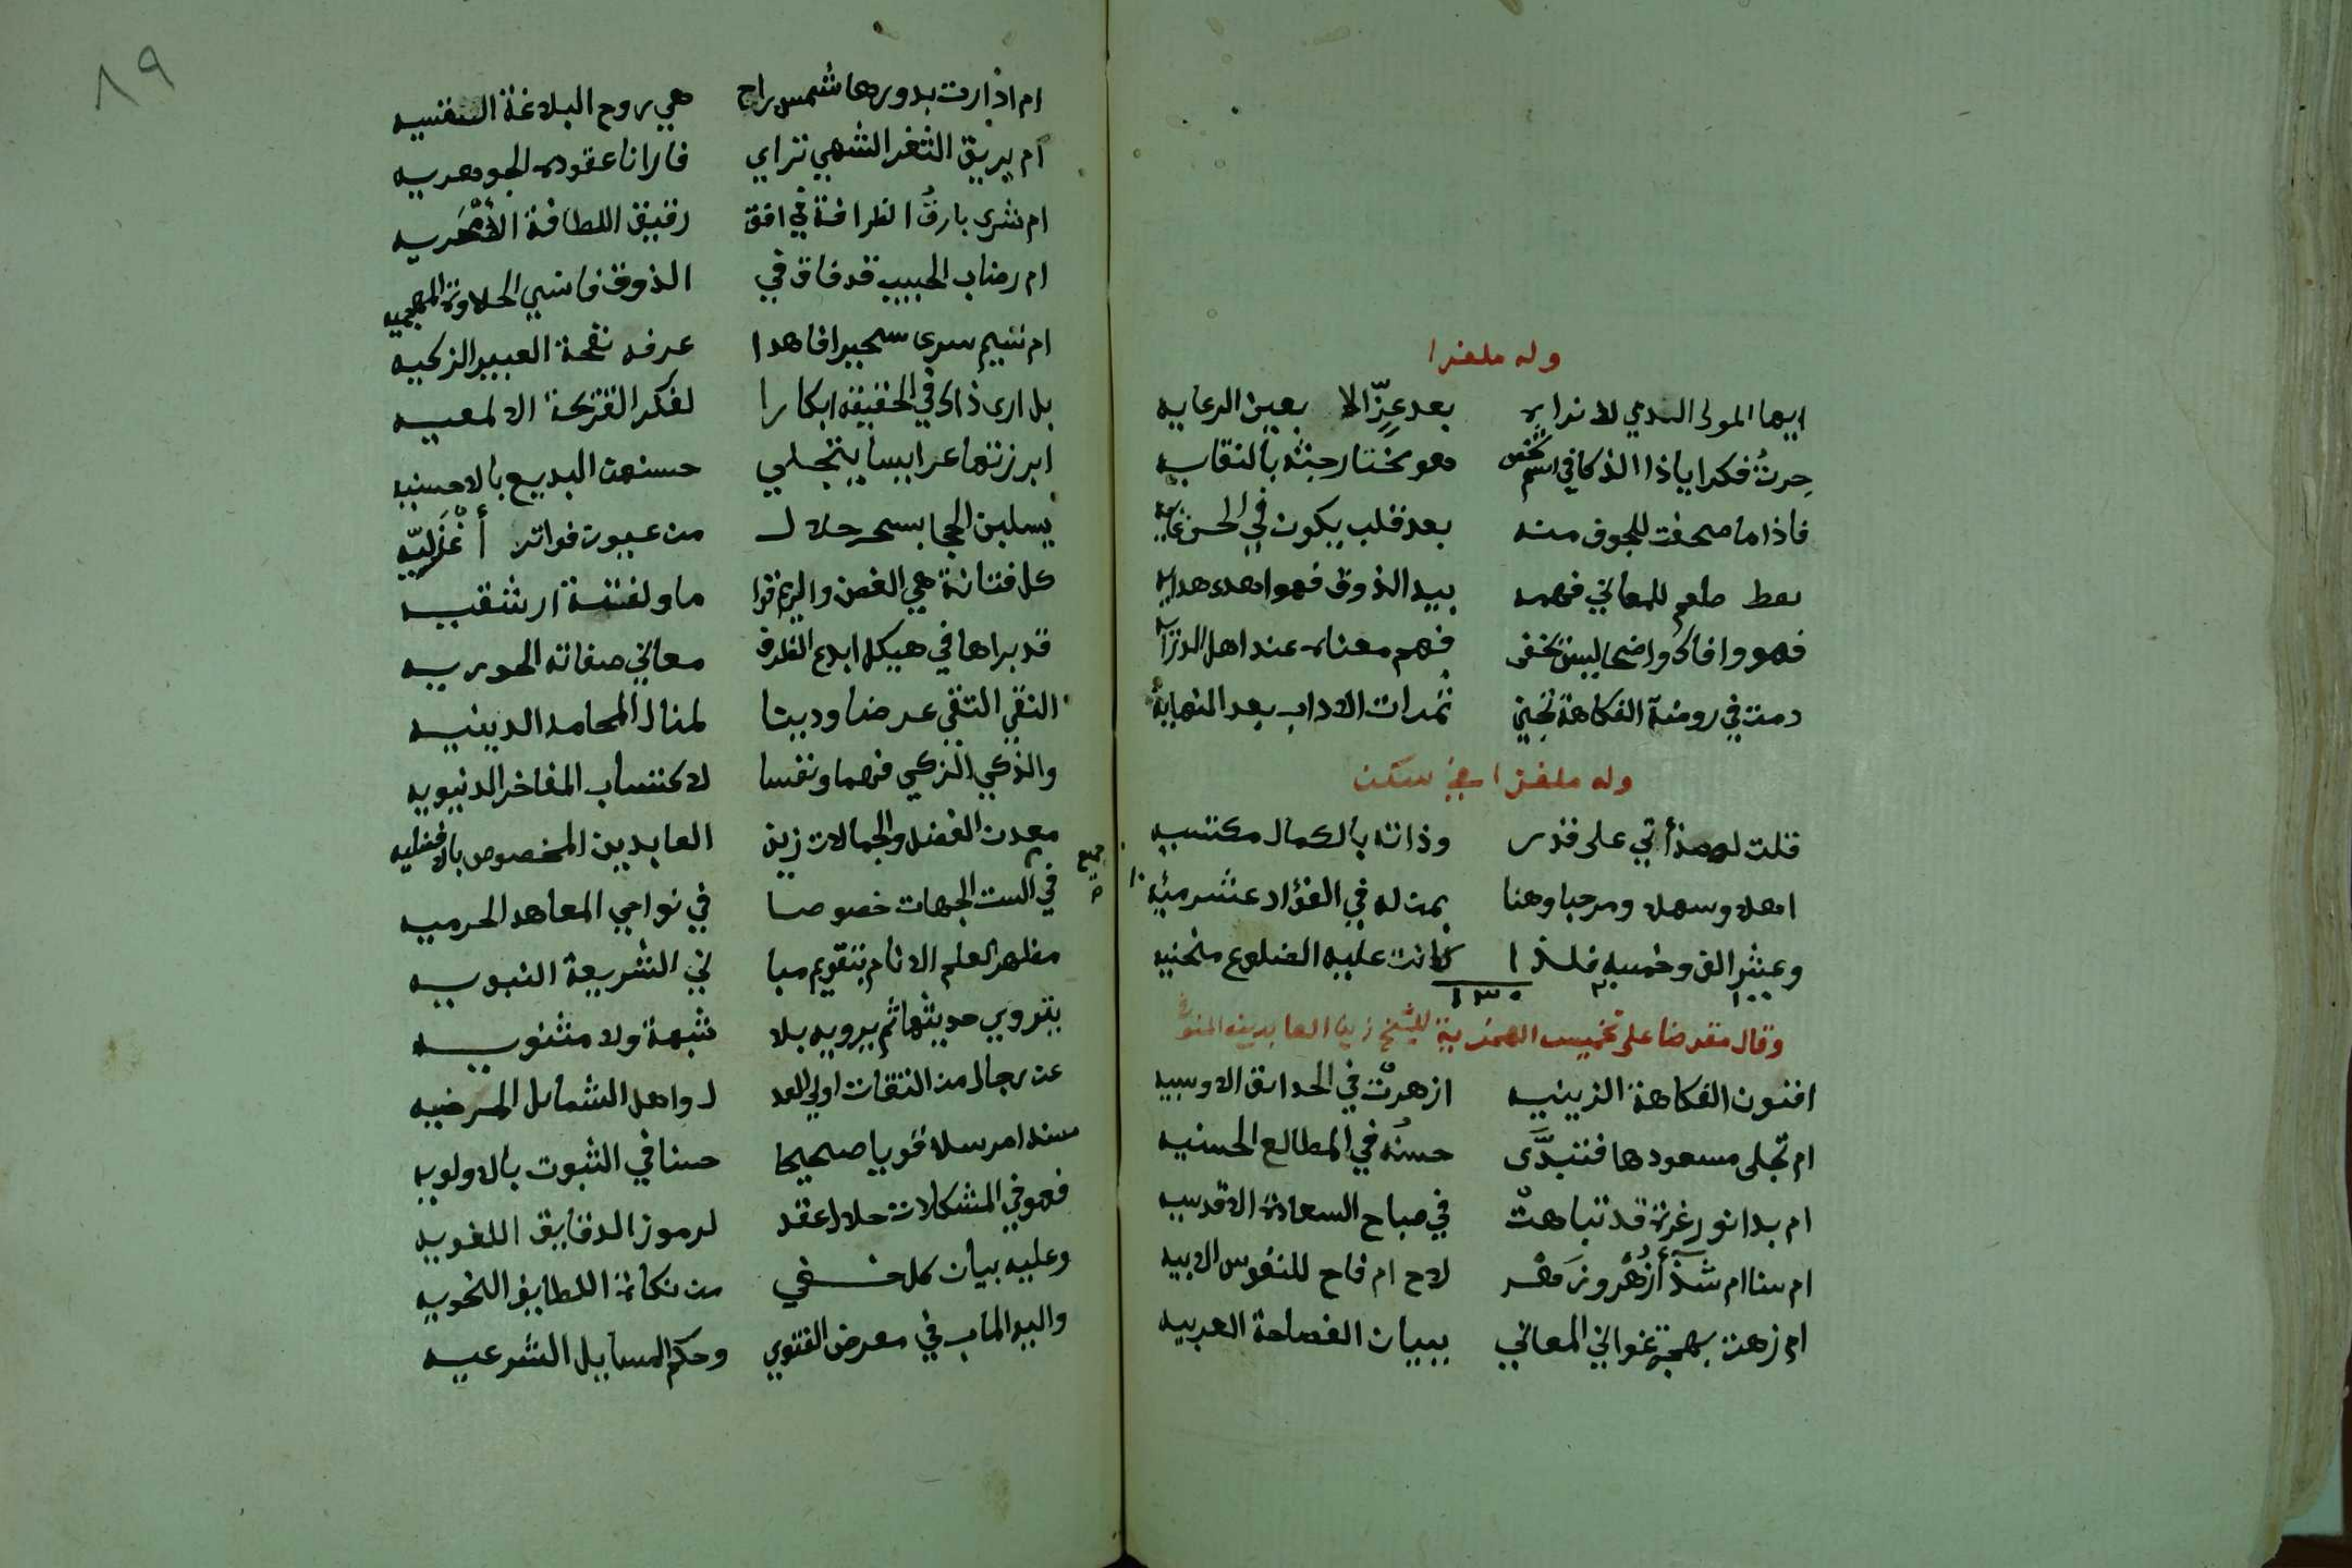 وله ملغزا
ايها المولى الذي لا نراه بعد عزّ الا بعين الرعايه
حِرتُ فكرا ياذا الذكا في اسم شخص وهو مختار جنثه بالنقايه
فاذا ما صحفت للجوف منه بعد قلب يكون في الحسن غايه
طعم للمعاني فهمه بيد الذوق فهو اهدى هدايه
فهو وافاك واضحا ليس يخفى فهم معناه عند اهل الدرايه
دمت في روضة الفكاهة تجني ثمرات الاداب بعد النهاية
وله ملغزا في سكن
قلت لهذا أتي على قدر وذاته بالكمال مكتسبه
اهلا وسهلا ومرحبا وهنا بمن له في الفؤاد عشر ميه ١٠
وعشر الف وخمسه فلذا كانت عليه الضلوع منحنيه
١٠٠ ١٣٠
وقال مقرضا على تخميس الهمزية للشيخ زين العابدين
افنون الفكاهة الزينيه ازهرتْ في الحدائق الاوسيه
ام تجلى مسعودها فتبدَّى حسنُه في المطالع الحسنيه
ام بدا نور غرة قد تباهتْ في صباح السعادة الاقدسيه
ام سنا ام شذ أزهُر وزهر لاح ام فاح للنفوس الابيه
ام زهت بهجة غواني المعاني ببيان الفصاحة العربيه
٨٩
ام ادارت بدورها شمس راح هي روح البلاغة النفسيه
ام بريق الثغر الشهي تراي فارانا عقوده الجوهريه
ام شرى بارقُ الظرافة في افق رقيق اللطافة
ام رضاب الحبيب قد فاق في الذوق فانسي الحلاوة
ام نسيم سرى سحيرا فاهدا عرفه نفحة العبير الزكيه
بل ارى ذاك في الحقيقه ابكارا لفكر القريحة الالمعيه
ابرزتها عرايسا يتجلي حسنهن البديع بالاحسنيه
يسلبن الحجا بسحر حلال من عيون فواتر أغْزَليّه
كل فتانة هي الغصن والريم قوا ما ولفتة ارشقيه
قد براها في هيكل ابدع الظرف معاني صفاته الحوريه
التقي النقي عرضا ودينا لمنال المحامد الدينيه
والذكي الزكي فهما ونفسا لاكتساب المفاخر الدنيويه
معدن الفضل والجمالات زين العابدين المخصوص بالافضليه
في الست الجهات خصوصا في نواحي المعاهد الحرميه
جميع
مظهر العلم الانام بتقويم مبا ني الشريعة النبويه
يتروي حديثها ثم يرويه بلا شبهة ولا مثنويه
عن رجال من الثقات اولي العد ل واهل الشمائل المرضيه
مسندا مرسلا قويا صحيحا حسنا في الثبوت بالاولويه
فهو في المشكلات حلال عقد لرموز الدقايق اللغويه
وعليه بيان كل خفي من نكات اللطايف النحويه
واليه الماب في معرض الفتوى وحكم المسايل الشرعيه